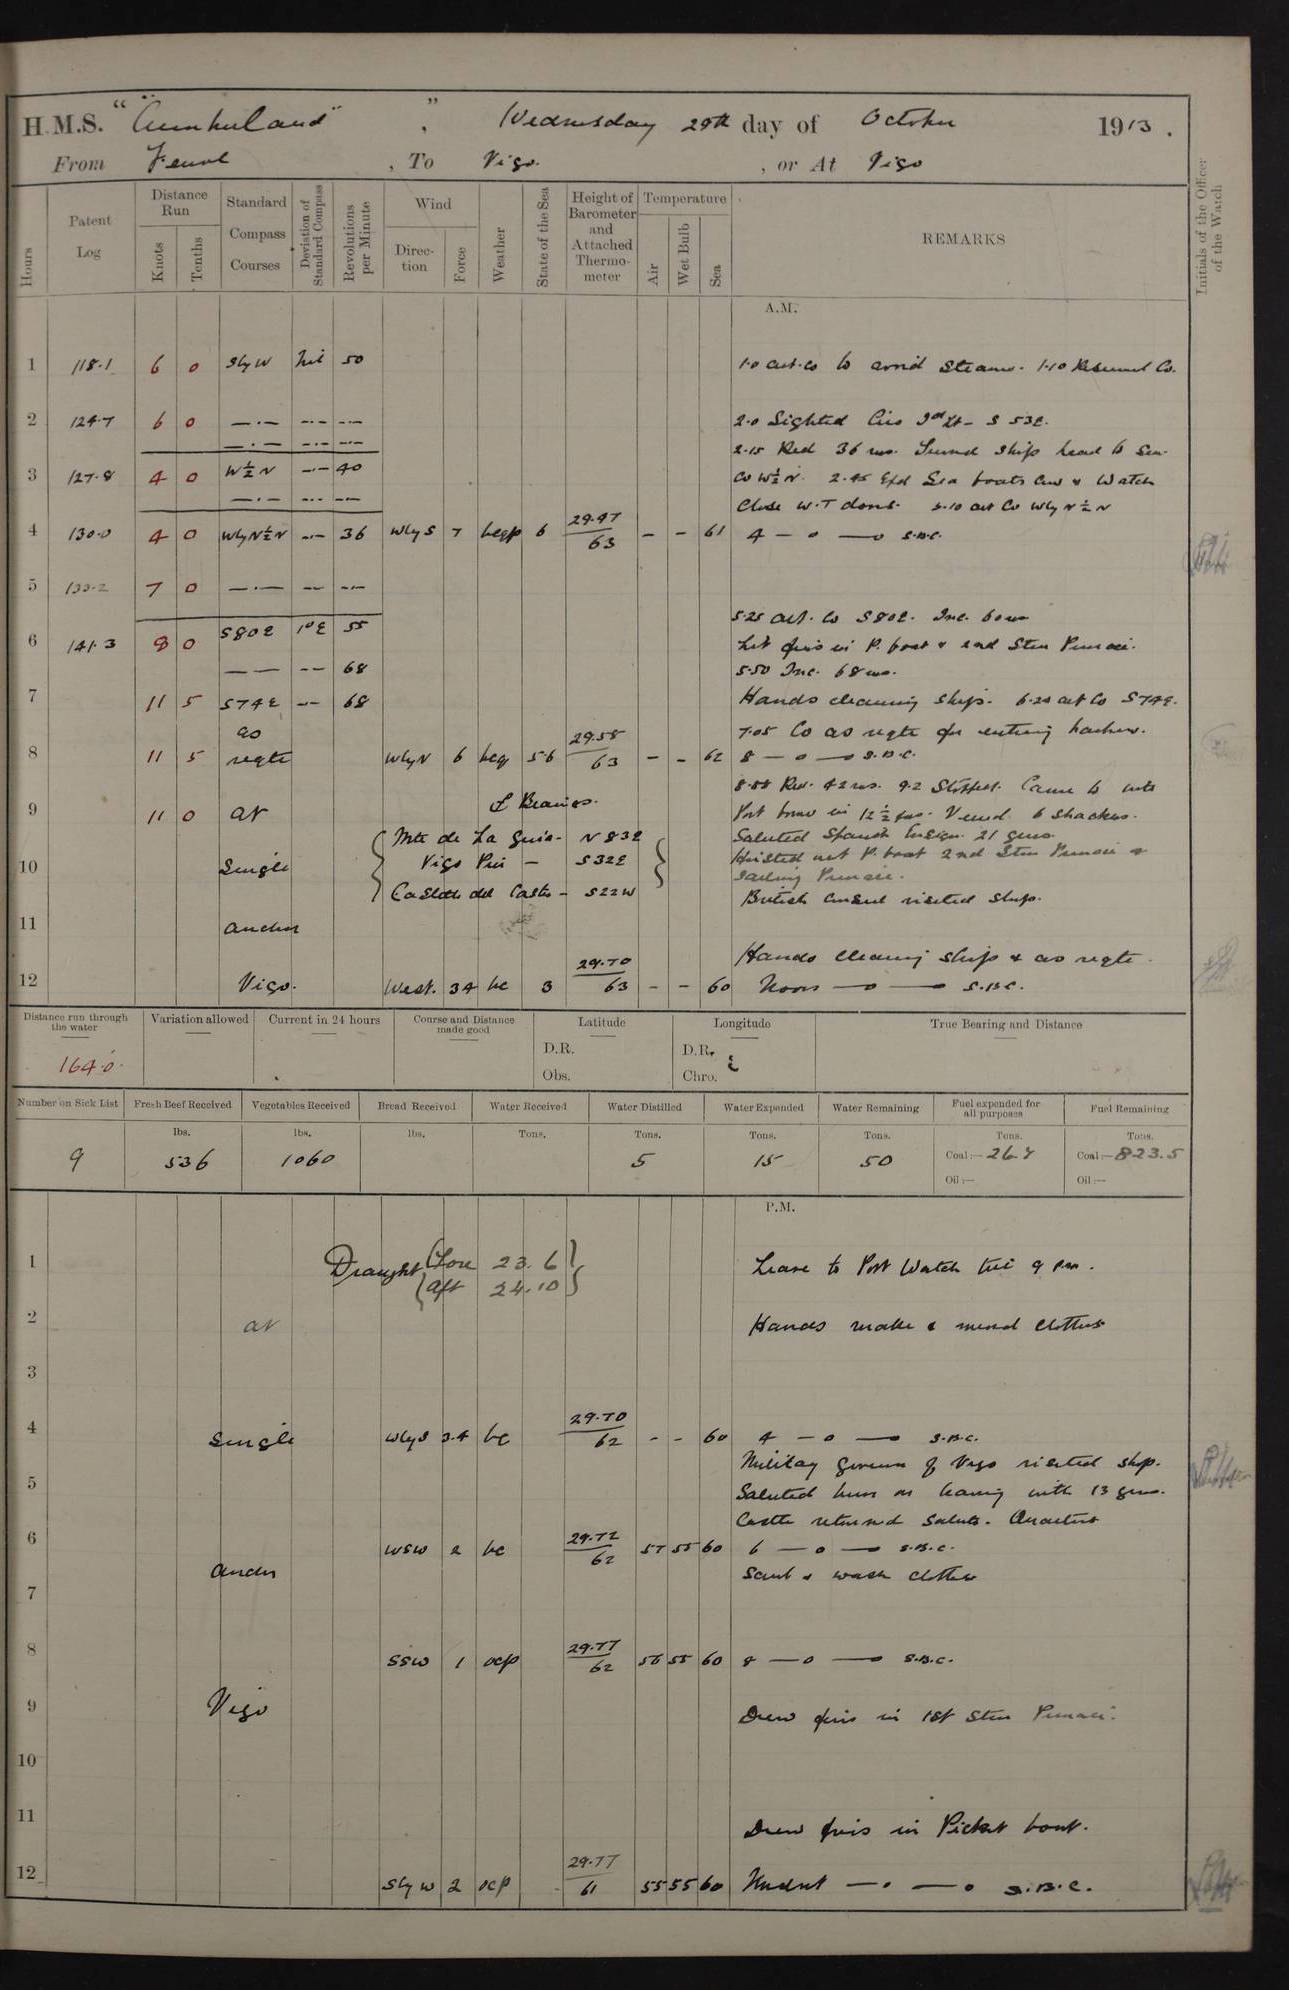 H.M.S. “ "Cumberland" ” , Wednesday 29th day of October 1913 .
From Ferrol , To Vigo. , or At Vigo
Hours
Patent Log
Distance Run
Knots
Tenths
Standard Compass Courses
Deviation of Standard Compass
Revolutions per Minute
Wind
Direction
Force
Weather
State of the Sea
Height of Barometer and Attached Thermometer
Temperature
Air
Wet Bulb
Sea
REMARKS
Initials of the Officer of the Watch
A.M.
1 118.1 6 0 SbyW Nil 50 1.0 alt. co to avoid Steamer. 1.10 Resumed Co.
2 124.7 6 0 —.— —.— —.— 2.0 Sighted Cies Id Lt - S 53E.
—.— —.— —.— 2.15 Red 36 revs. Turned ship head to Sea.
3 127.8 4 0 W½N —.— 40 Co W½N. 2.45 Exd Sea boats Crew & Watch
—.— —.— —.— Close W.T doors. 3.10 alt Co WbyN½N
4 130.0 4 0 WbyN½N —.— 36 WbyS 7 bcqp 6 29.47/63 - - 61 4 — o — o S.B.C.
5 133.2 7 0 —.— —.— —.—
5.25 alt. Co S80E. Inc. 60 revs
6 141.3 8 0 S80E 1°E 55 Lit fires in P. boat & 2nd Stm Pinnace.
— — -- 68 5.50 Inc. 68 revs.
7 11 5 S74E -- 68 Hands cleaning ship. 6.20 alt Co S74E.
as 7.05 Co as reqte for entering harbour.
8 11 5 reqte WbyN 6 bcq 5.6 29.58/63 - - 62 8 — o — o S.B.C.
8.58 Rev. 42 revs. 9.2 Stopped. Came to with
9 11 0 at Port bower in 12½ fms. Veered 6 shackles.
Bearings.
Mte de La Guia - N83E Saluted Spanish Ensign 21 guns
10 Single Vigo Pier — S32E Hoisted out P. boat 2nd Stm Pinnace &
Sailing Pinnace.
Castillo del Castro - S22W British Consul visited ship.
11 anchor
Hands cleaning ship & as reqte.
12 Vigo. West. 3.4 bc 3 29.70/63 - - 60 Noon — o — o S.B.C.
Distance run through the water
Variation allowed
Current in 24 hours
Course and Distance made good
Latitude
Longitude
True Bearing and Distance
164.0
D.R.
Obs.
D.R.
Chro.
Number on Sick List
Fresh Beef Received
Vegetables Received
Bread Received
Water Received
Water Distilled
Water Expended
Water Remaining
Fuel expended for all purposes
Fuel Remaining
lbs. lbs. lbs. Tons. Tons. Tons. Tons. Tons. Tons.
9 536 1060 5 15 50 Coal:— Coal:—823.5
Oil:— Oil:—
P.M.
1 Draught { Fore 23.6 Leave to Port Watch till 9 pm.
{ aft 24.10
2 at Hands make & mend clothes
3
4 Single WbyS 3.4 bc 29.70/62 - - 60 4 — o — o S.B.C.
Military Governor of Vigo visited ship.
5 Saluted him on leaving with 13 guns.
Castle returned Salute. Quarters
6 WSW 2 bc 29.72/62 57 55 60 6 — o — o S.B.C.
anchor Scrub & wash clothes
7
8 SSW 1 ocp 29.77/62 56 55 60 8 — o — o S.B.C.
9 Vigo Drew fires in 1st Stm Pinnace.
10
11 Drew fires in Picket boat.
12 SbyW 2 ocp 29.77/61 55 55 60 Midnt — o — o S.B.C.